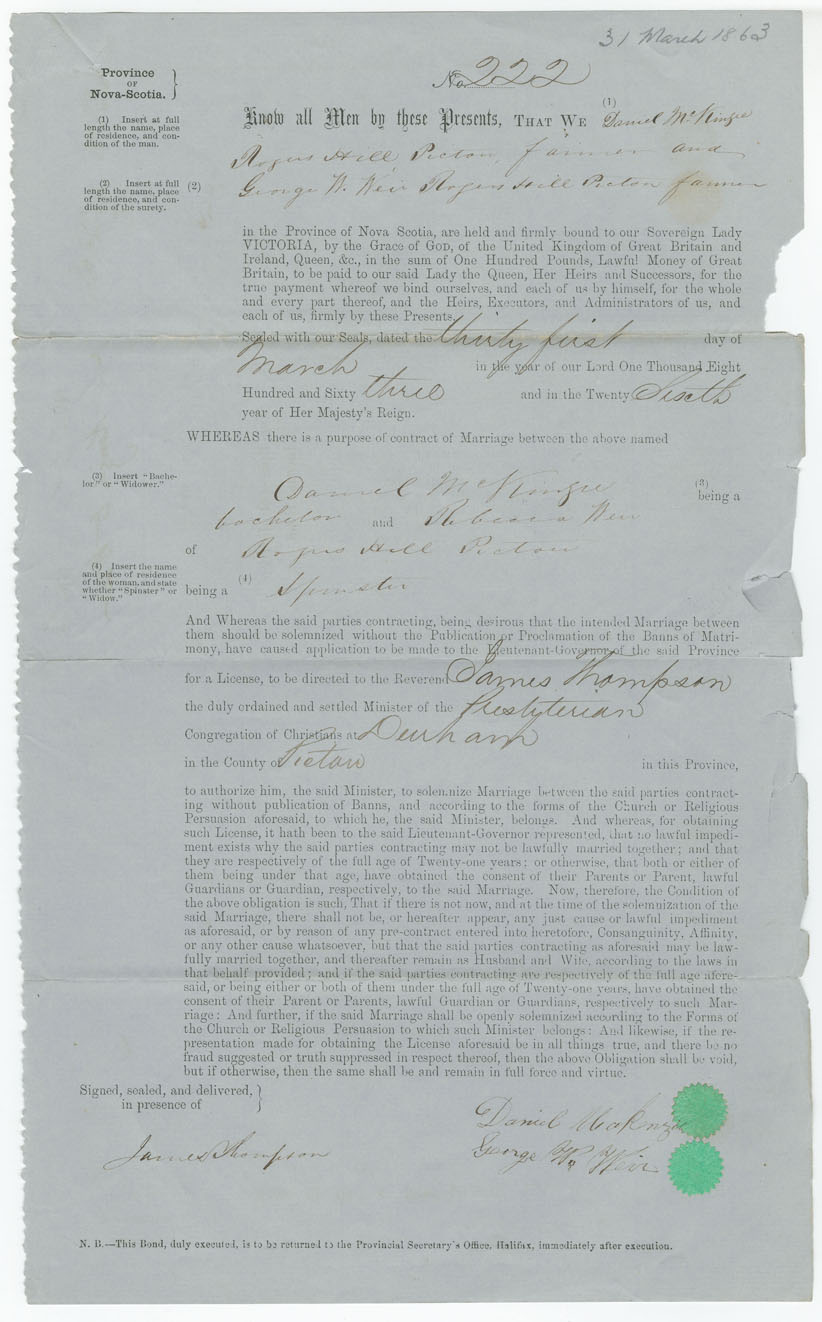 31 March 1863
Province
OF
Nova-Scotia.
No. 222
(1) Insert at full
length the name, place
of residence, and con-
dition of the man.
(1)
Know all Men by these Presents, THAT WE Daniel McKinzie
Rogers Hill Picton, farmer and
(2) Insert at full
length the name, place
of residence, and con-
dition of the surety.
(2) George W. Weir Rogers Hill Picton farmer
in the Province of Nova Scotia, are held and firmly bound to our Sovereign Lady
VICTORIA, by the Grace of GOD, of the United Kingdom of Great Britain and
Ireland, Queen, &c., in the sum of One Hundred Pounds, Lawful Money of Great
Britain, to be paid to our said Lady the Queen, Her Heirs and Successors, for the
true payment whereof we bind ourselves, and each of us by himself, for the whole
and every part thereof, and the Heirs, Executors, and Administrators of us, and
each of us, firmly by these Presents.
Sealed with our Seals, dated the thirty first day of
March in the year of our Lord One Thousand Eight
Hundred and Sixty three and in the Twenty Sixth
year of Her Majesty's Reign.
WHEREAS there is a purpose of contract of Marriage between the above named
(3) Insert "Bache-
lor" or "Widower."
Daniel McKinzie (3) being a
bachelor and Rebecca Weir
of Rogers Hill Picton
(4) Insert the name
and place of residence
of the woman, and state
whether "Spinster" or
"Widow."
being a (4) Spinster
And Whereas the said parties contracting, being desirous that the intended Marriage between
them should be solemnized without the Publication or Proclamation of the Banns of Matri-
mony, have caused application to be made to the Lieutenant-Governor of the said Province
for a License, to be directed to the Reverend James Thompson
the duly ordained and settled Minister of the Presbyterian
Congregation of Christians at Durham
in the County of Picton in this Province,
to authorize him, the said Minister, to solemnize Marriage between the said parties contract-
ing without publication of Banns, and according to the forms of the Church or Religious
Persuasion aforesaid, to which he, the said Minister, belongs. And whereas, for obtaining
such License, it hath been to the said Lieutenant-Governor represented, that no lawful impedi-
ment exists why the said parties contracting may not be lawfully married together; and that
they are respectively of the full age of Twenty-one years: or otherwise, that both or either of
them being under that age, have obtained the consent of their Parents or Parent, lawful
Guardians or Guardian, respectively, to the said Marriage. Now, therefore, the Condition of
the above obligation is such, That if there is not now, and at the time of the solemnization of the
said Marriage, there shall not be, or hereafter appear, any just cause or lawful impediment
as aforesaid, or by reason of any pre-contract entered into heretofore, Consanguinity, Affinity,
or any other cause whatsoever, but that the said parties contracting as aforesaid may be law-
fully married together, and thereafter remain as Husband and Wife, according to the laws in
that behalf provided; and if the said parties contracting are respectively of the full age afore-
said, or being either or both of them under the full age of Twenty-one years, have obtained the
consent of their Parent or Parents, lawful Guardian or Guardians, respectively to such Mar-
riage: And further, if the said Marriage shall be openly solemnized according to the Forms of
the Church or Religious Persuasion to which such Minister belongs: And likewise, if the re-
presentation made for obtaining the License aforesaid be in all things true, and there be no
fraud suggested or truth suppressed in respect thereof, then the above Obligation shall be void,
but if otherwise, then the same shall be and remain in full force and virtue.
Signed, sealed, and delivered,
in presence of
Daniel McKenzie
James Thompson
George W. Weir
N. B.—This Bond, duly executed, is to be returned to the Provincial Secretary's Office, Halifax, immediately after execution.